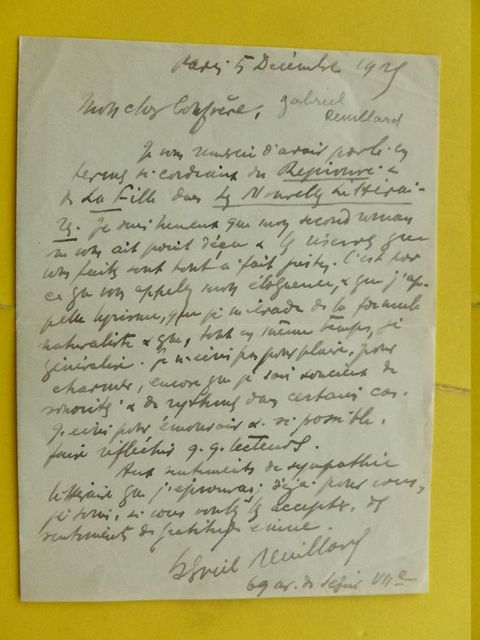 Paris 5 Décembre 1925
Mon cher Confrère,
gabriel
Reuillard
Je vous remercie d'avoir parlé en
termes si cordiaux du Réprouvé &
de La Fille dans Les Nouvelles Littérai-
res. Je suis heureux que mon second roman
ne vous ait point déçu & les réserves que
vous faites sont tout à fait justes. C'est par
ce que vous appelez mon éloquence, & que j'ap-
pelle lyrisme, que je m'évade de la formule
naturaliste & que, tout en même temps, je
généralise. Je n'écris pas pour plaire, pour
charmer, encore que je sois soucieux de
sonorité & de rythme dans certains cas.
J'écris pour émouvoir & si possible,
faire réfléchir q.q. lecteurs.
Aux sentiments de sympathie
littéraire que j'éprouvais déjà pour vous,
je joins, si vous voulez les accepter, des
sentiments de gratitude émue.
Gabriel Reuillard
69 av. de Ségur VIIe